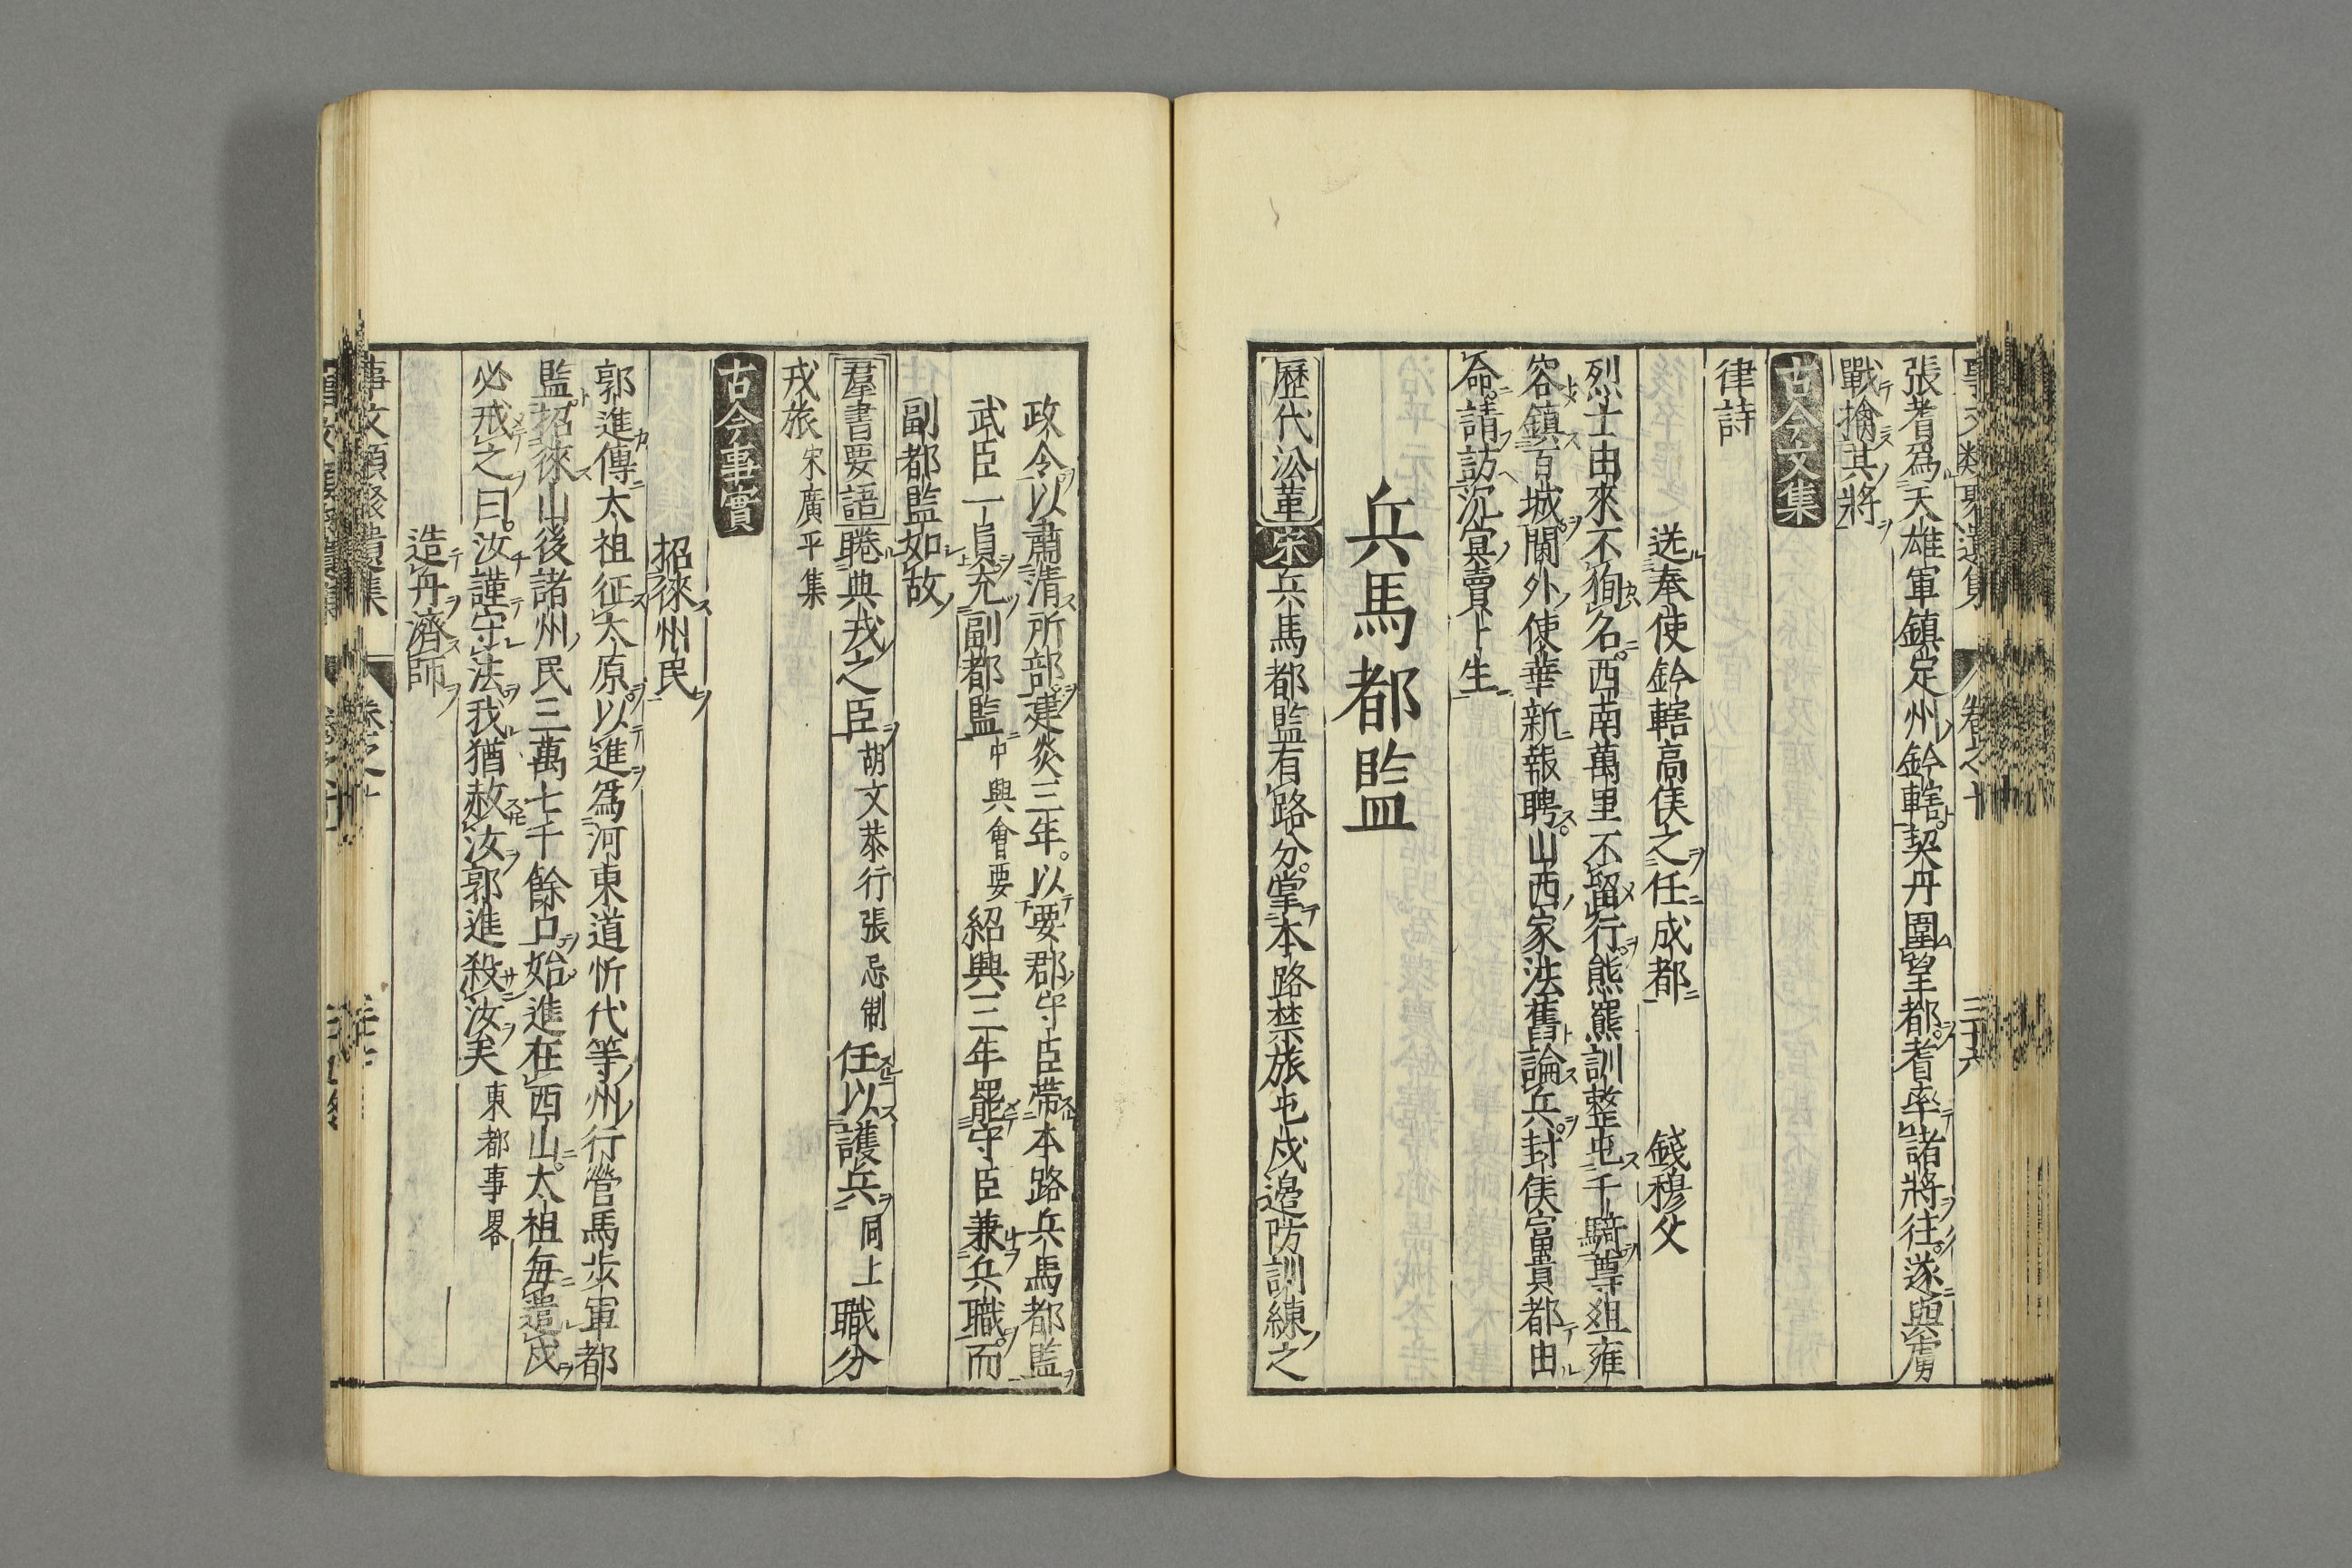 張耆爲天雄軍鎮定州鈐轄契丹圍望都耆率諸將往遂與虜
戰擒其將
古今文集
律詩
送奉使鈐轄高侯之任成都 錢穆父
烈士由來不徇名西南萬里不留行熊羆訓整屯千騎尊俎雍
容鎮百城閫外使華新報聘山西家法舊論兵封侯富貴都由
命請訪沉冥賣卜生
兵馬都監
歷代沿革宋兵馬都監有路分掌本路禁旅屯戍邊防訓練之
政令以肅清所部建炎三年以要郡守臣帶本路兵馬都監
武臣一員充副都監中興會要紹興三年罷守臣兼兵職而
副都監如故
羣書要語睠典戎之臣胡文恭行張忌制任以護兵同上職分
戎旅宋廣平集
古今事實
招徠州民
郭進傳太祖征太原以進爲河東道忻代等州行營馬步軍都
監招徠山後諸州民三萬七千餘口始進在西山太祖每遣戍
必戒之曰汝謹守法我猶赦汝郭進殺汝矣東都事畧
造舟濟師
事文類聚遺集